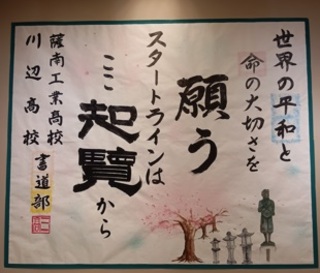 世界の平和と
命の大切さを
願う
スタートラインは
ここ知覧から
薩南工業高校
川辺高校
書道部